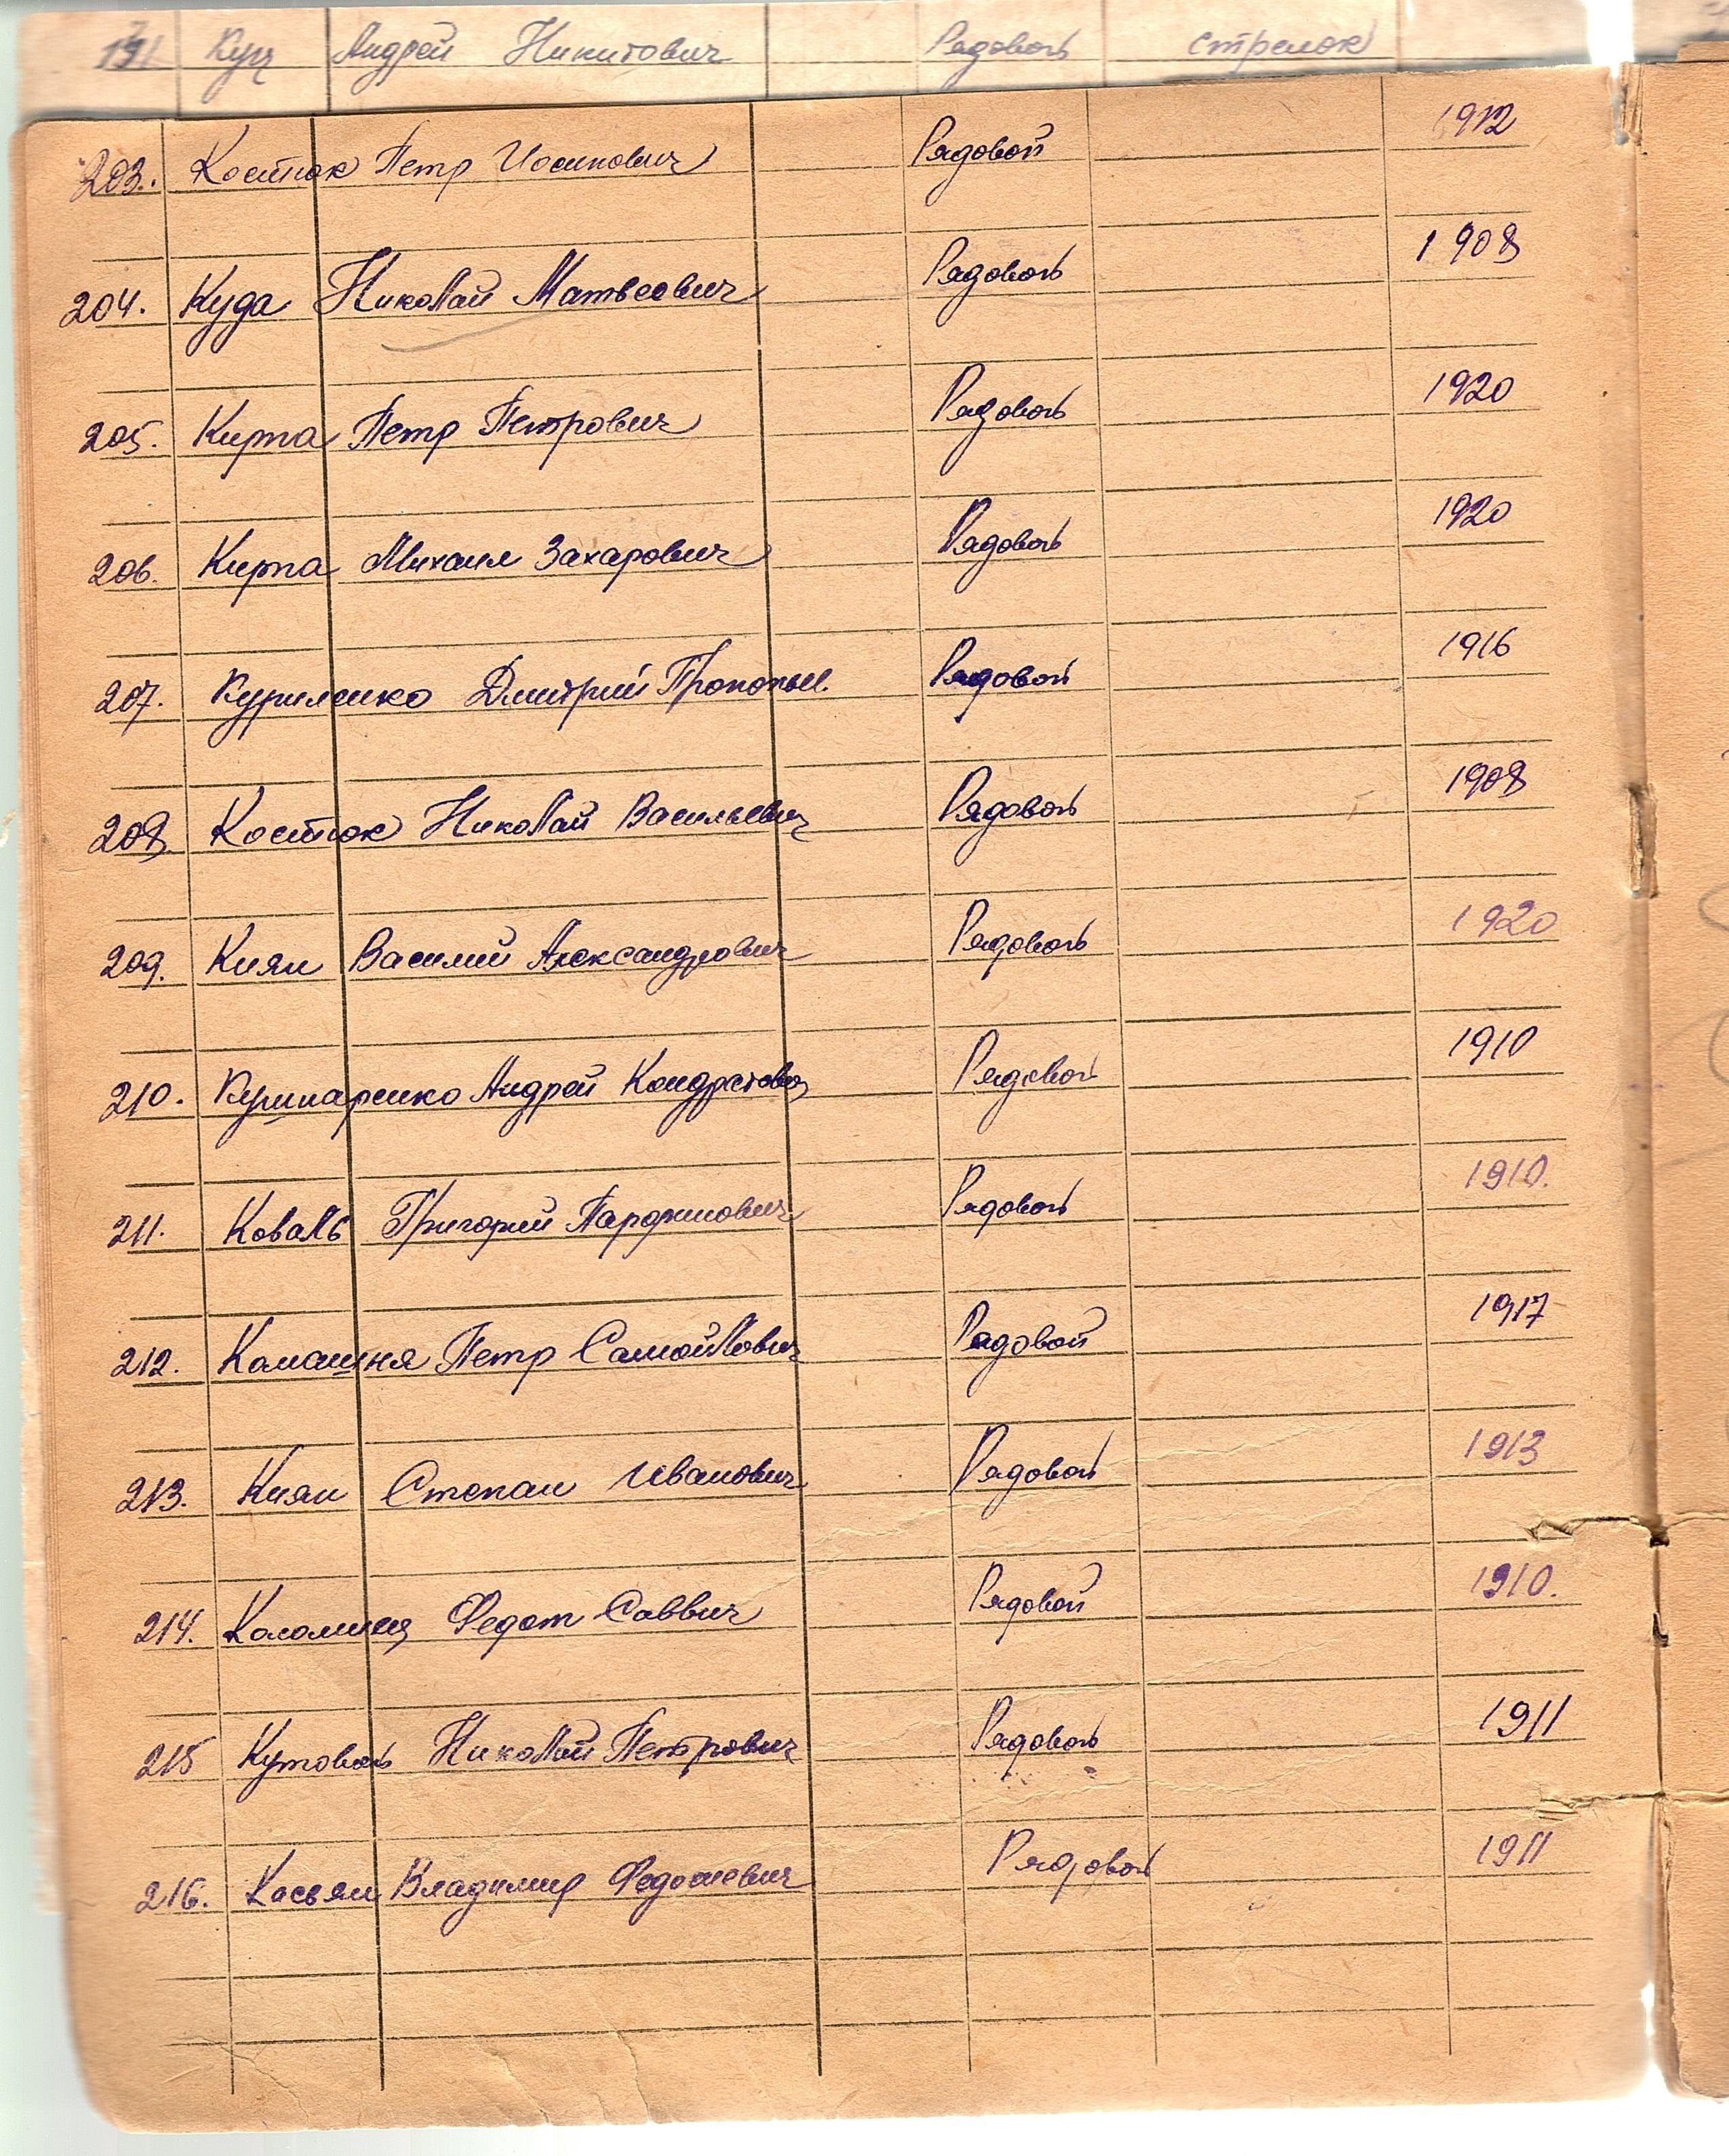 191 Куц Андрей Никитович Рядовой стрелок
203. Костюк Петр Иосипович Рядовой 1912
204. Куда Николай Матвеович Рядовой 1908
205. Кирпа Петр Петрович Рядовой 1920
206. Кирпа Михаил Захарович Рядовой 1920
207. Куриленко Дмитрий Прокопьи. Рядовой 1916
208. Костюк Николай Васильевич Рядовой 1908
209. Киян Василий Александрович Рядовой 1920
210. Кушнаренко Андрей Кондратович Рядовой 1910
211. Коваль Григорий Парфинович Рядовой 1910.
212. Калашня Петр Самойлович Рядовой 1917
213. Киян Степан Иванович Рядовой 1913
214. Коломиец Федот Саввич Рядовой 1910.
215 Кутовой Николай Петрович Рядовой 1911
216. Касьян Владимир Федосиевич Рядовой 1911